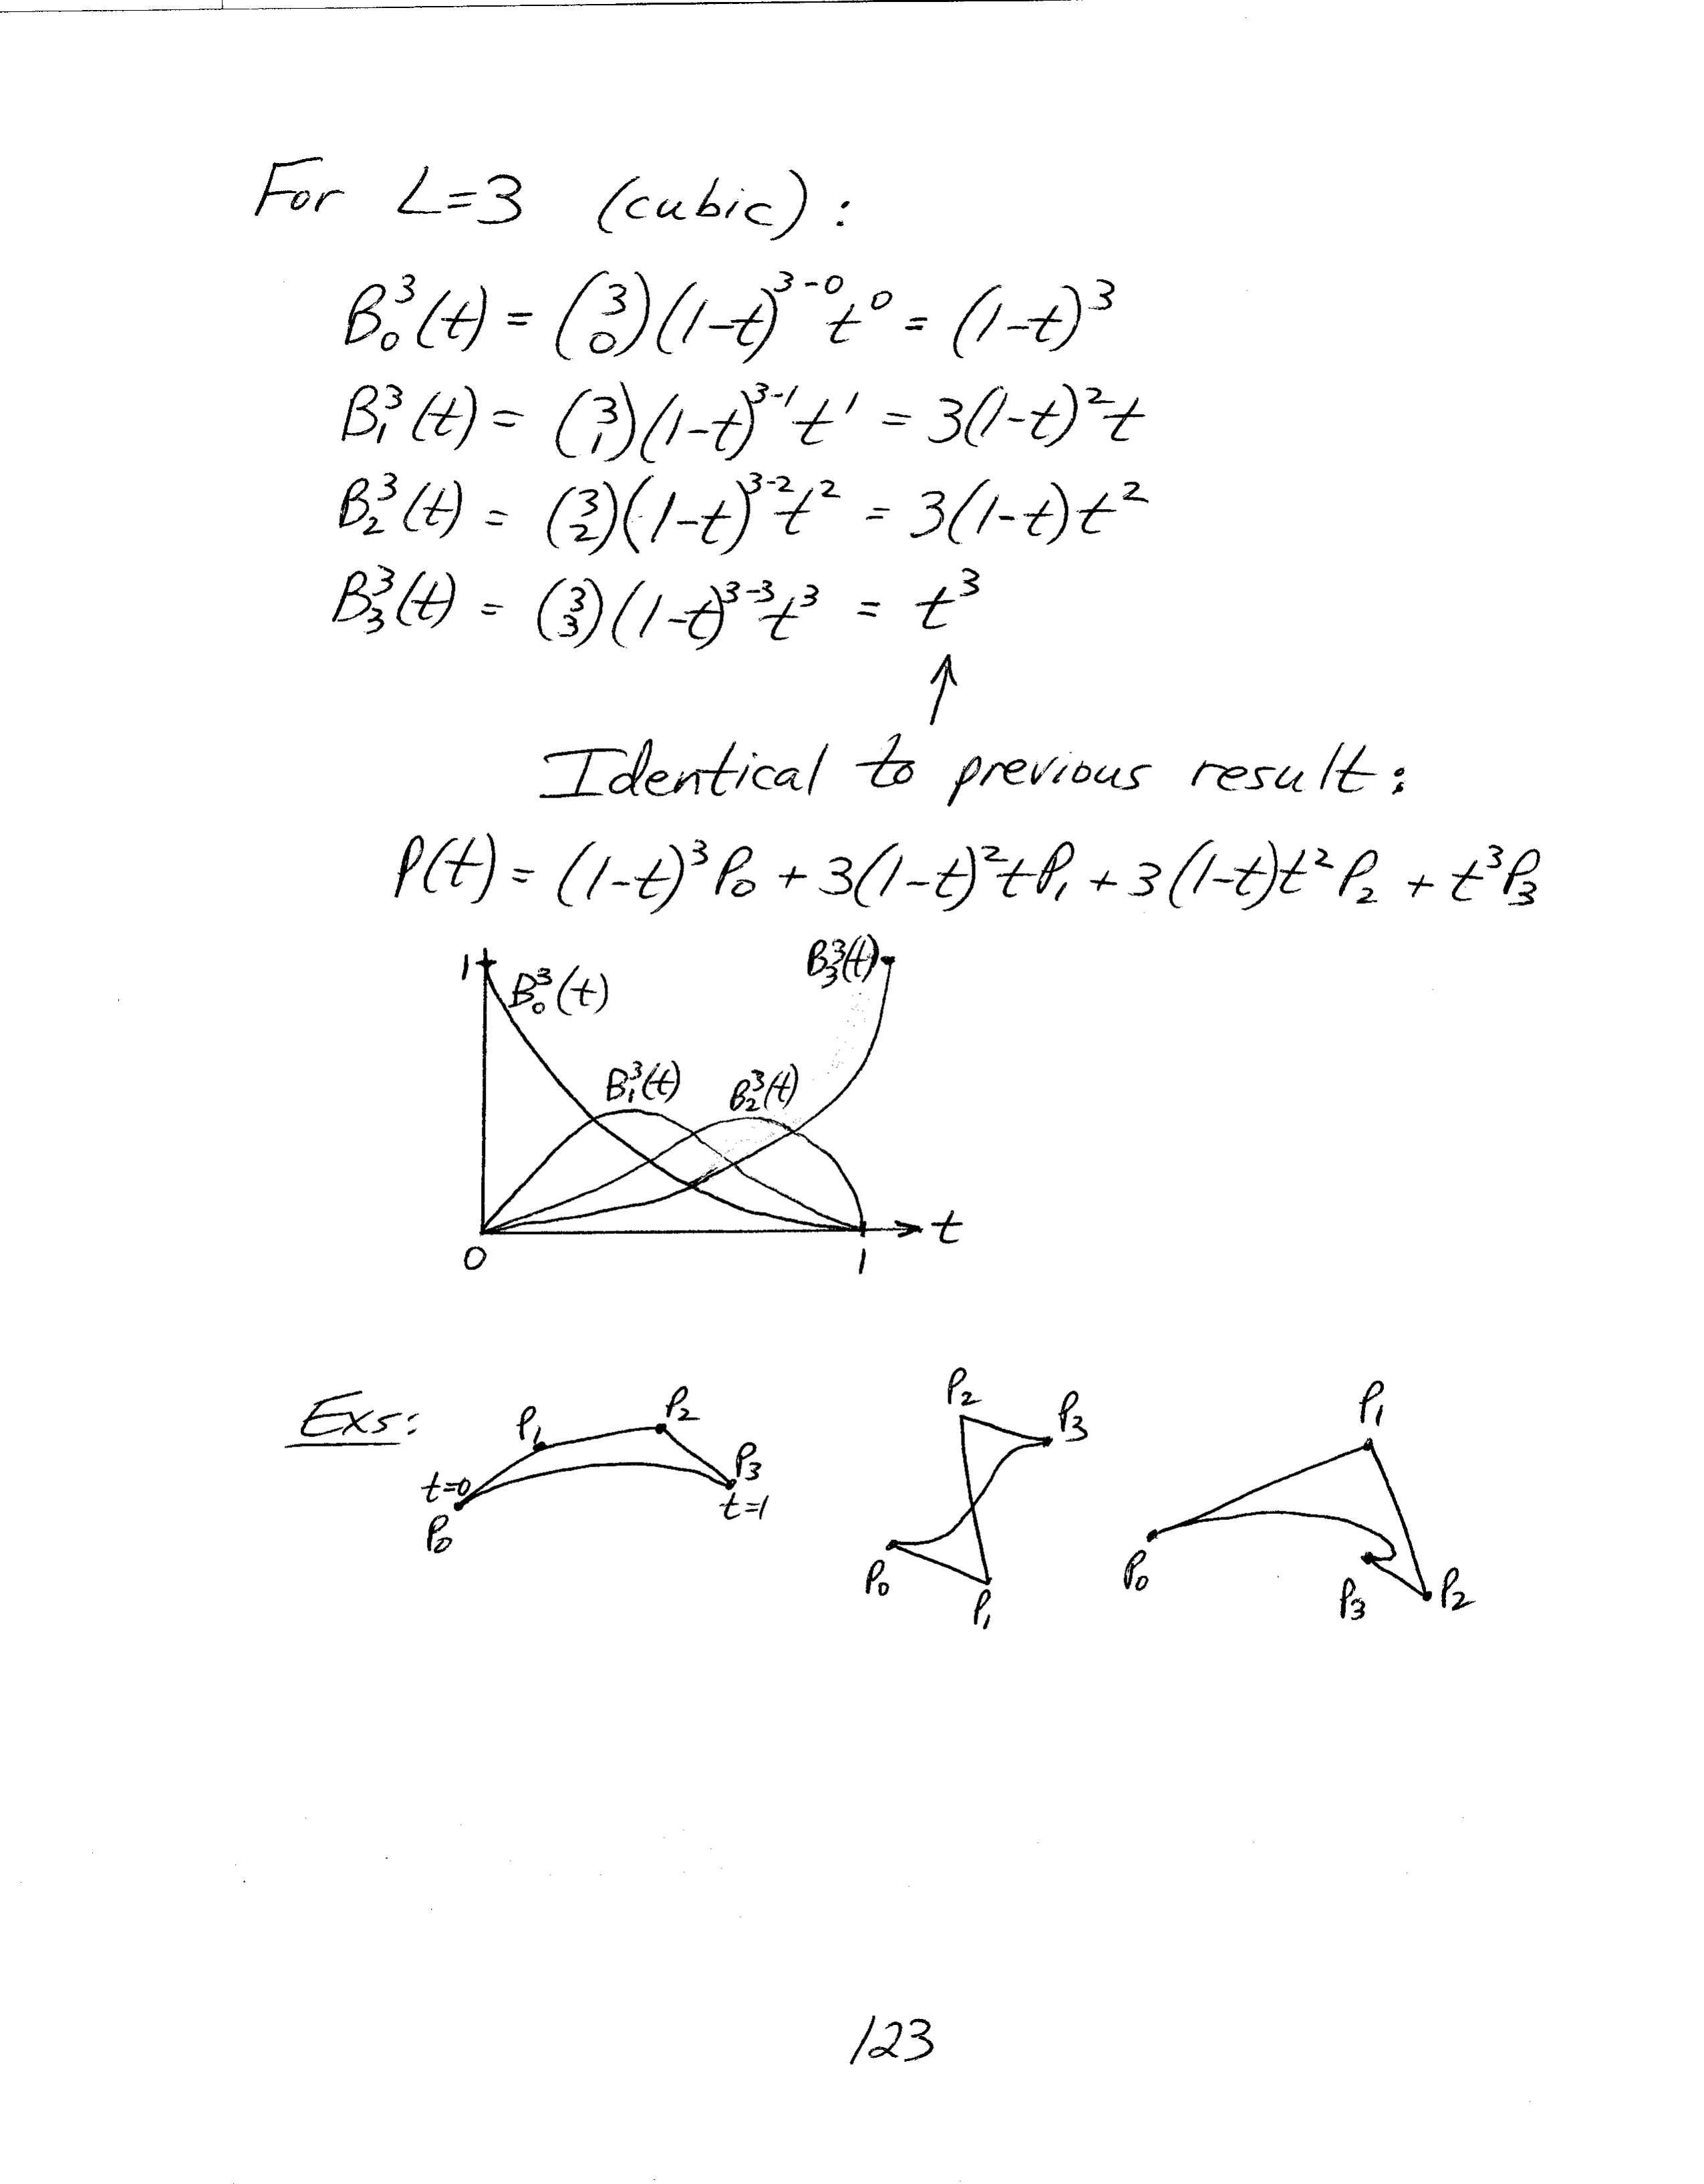 For L=3 (cubic):
B₀³(t) = (3 0)(1-t)³⁻⁰t⁰ = (1-t)³
B₁³(t) = (3 1)(1-t)³⁻¹t¹ = 3(1-t)²t
B₂³(t) = (3 2)(1-t)³⁻²t² = 3(1-t)t²
B₃³(t) = (3 3)(1-t)³⁻³t³ = t³
↑
Identical to previous result:
P(t) = (1-t)³P₀ + 3(1-t)²tP₁ + 3(1-t)t²P₂ + t³P₃
1 B₀³(t) B₃³(t)
B₁³(t) B₂³(t)
0 1 t
Exs:
P₁ P₂
t=0 P₃
P₀ t=1
P₂ P₃
P₀ P₁
P₁
P₀ P₃ P₂
123